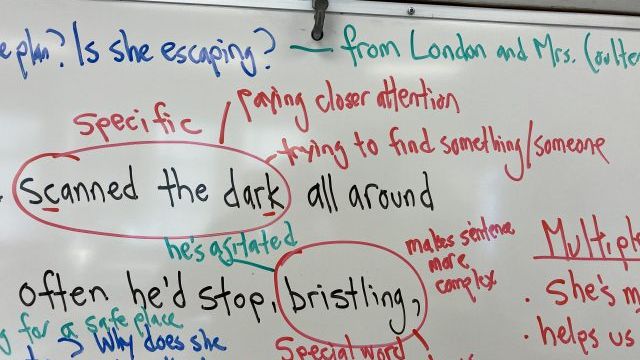 plan? Is she escaping? — from London and Mrs. Coulte
paying closer attention
specific
trying to find something/someone
scanned the dark all around
he's agitated
makes sentence
more
complex
Multipl
often he'd stop, bristling,
· She's m
for a safe place
Why does she
Special word
· helps us